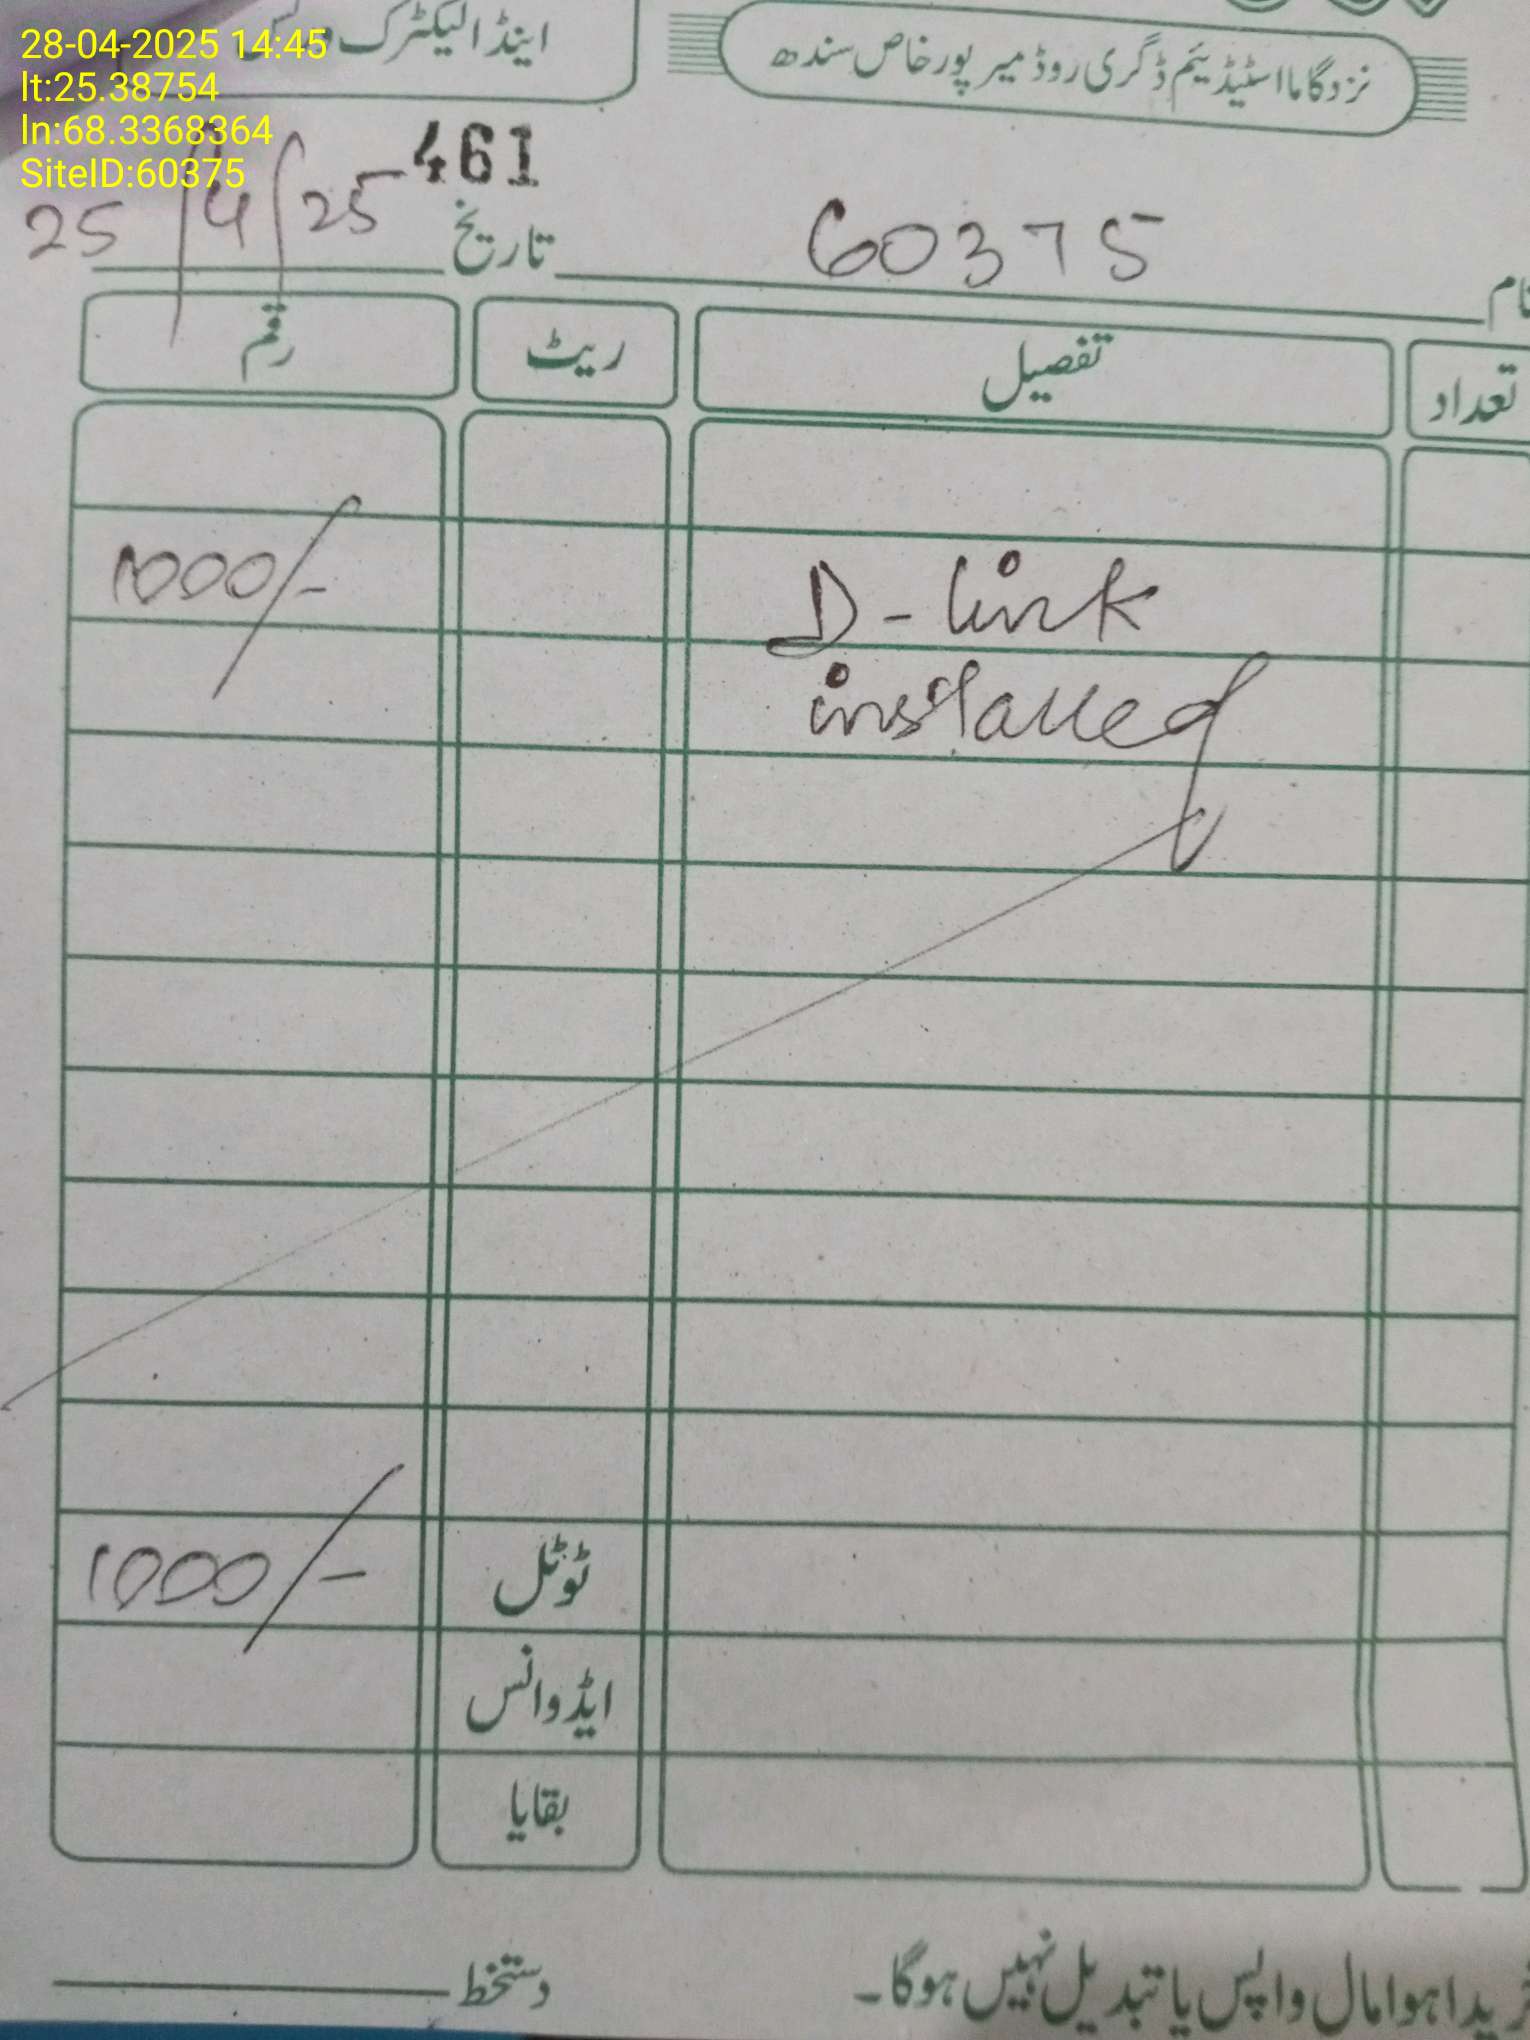 28-04-2025 14:45
lt:25.38754
ln:68.3368364
SiteID:60375
اینڈ الیکٹرک
نزد گاما اسٹیڈیئم ڈگری روڈ میر پور خاص سندھ
461
نام 60375 تاریخ 25/4/25
تعداد تفصیل ریٹ رقم
D-link 1000/-
installed
ٹوٹل 1000/-
ایڈوانس
بقایا
خریدا ہوا مال واپس یا تبدیل نہیں ہوگا۔
دستخط